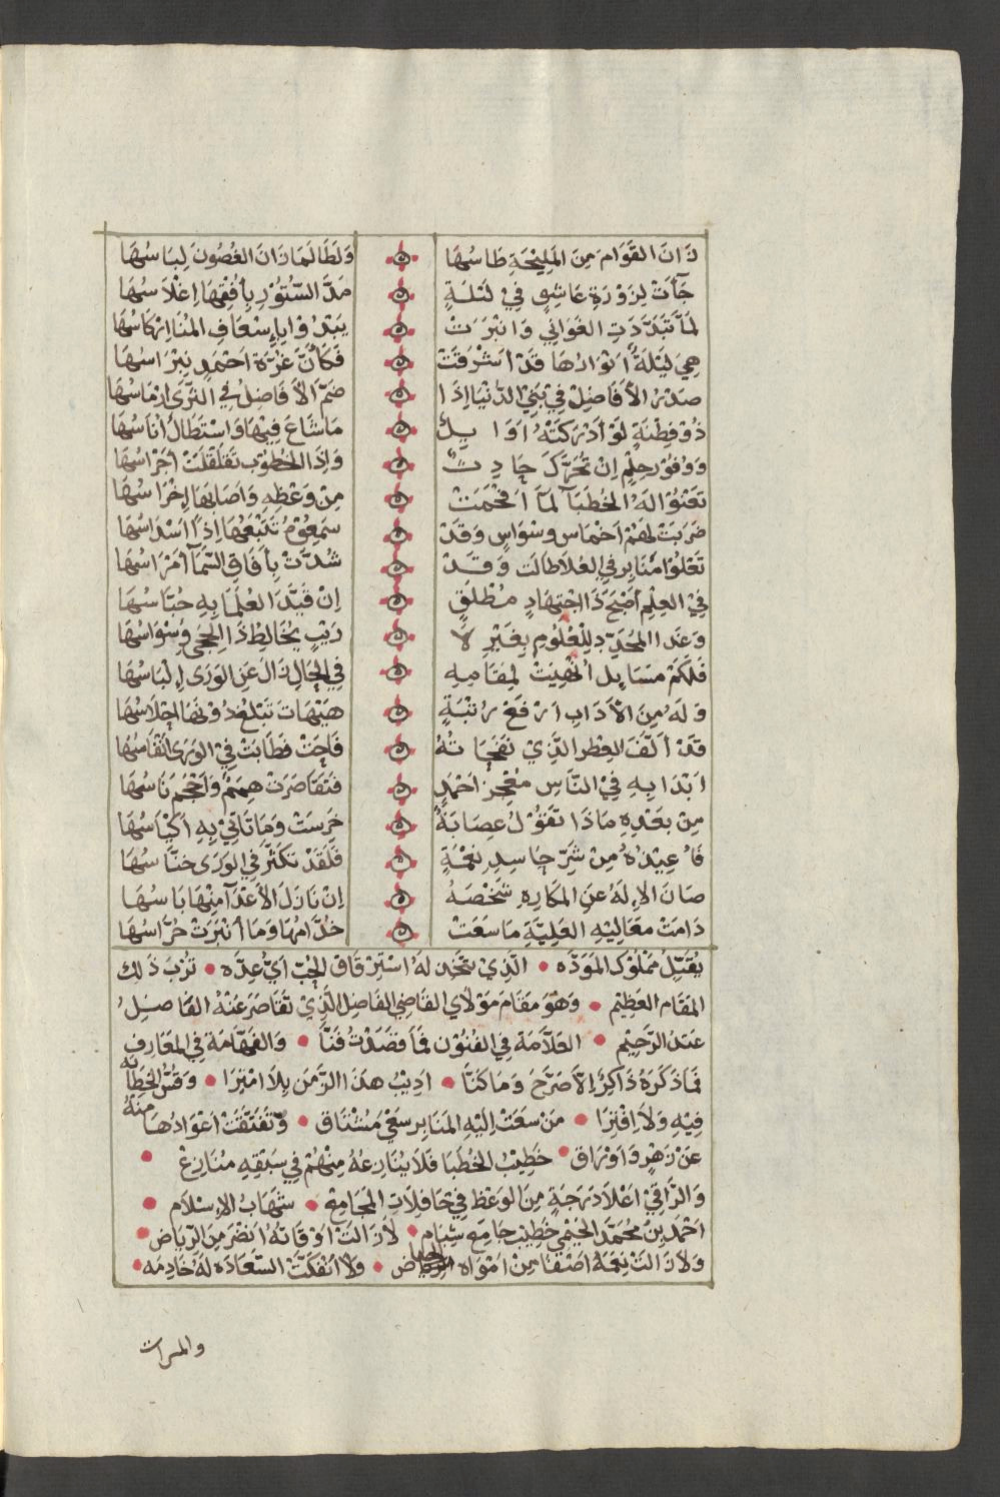 زَانَ القَوَامَ مِنَ المَلِيْحَةِ طَاسُهَا وَلَطَالَمَا زَانَ الغُصُونَ لِبَاسُهَا
جَآتْ لِزَوْرَةِ عَاشِقٍ فِيْ لَيْلَةٍ مَدَّ السُّتُوْرَ بِأُفْقِهَا اِغْلَاسُهَا
لَمَّا تَبَدَّدَتِ الغَوَانِي وَانْبَرَتْ يَبْدُوْا بِإِسْعَافِ المُنَا
هِيَ لَيْلَةٌ اَنْوَارُهَا قَدْ اَشْرَقَتْ فَكَأَنَّ غُرَّةَ اَحْمَدٍ نِبْرَاسُهَا
صَدْرُ الأَفَاضِلْ فِيْ بَنِي الدُّنْيَا اِذَا ضَمَّ الأَفَاضِلُ فِي الثَّرَى اَرْمَاسُهَا
ذُوْ فِطْنَةٍ لَوْ اَدْرَكَتْهُ اَوَايِلٌ مَا شَاعَ فِيْهَا وَاسْتَطَالَ اُنَاسُهَا
وَوُفُوْرِ حِلْمٍ اِنْ تَحَرَّكَ حَادِثٌ وَاِذَا الخُطُوْبُ تَقَلْقَلَتْ اَجْرَاسُهَا
تَعْنُوْا لَهُ الخُطَبَآ لَمَّا اَفْحَمَتْ مِنْ وَعْظِهِ وَاَصَابَهَا اِخْرَاسُهَا
ضَرَبَتْ لَهُمْ اَخْمَاسَ وِسْوَاسٍ وَقَدْ سَمِعُوْهُ تَتْبَعُهَا اِذًا اَسْدَاسُهَا
تَعْلُوْا مَنَابِرَ فِي العُلَا طَالَتْ وَقَدْ شُدَّتْ بِأَفَاقِ السَّمَآ اَمْرَاسُهَا
فِيْ العِلْمِ اَصْبَحَ ذَا اجْتِهَادٍ مُطْلَقٍ اِنْ قَيَّدَ العُلَمَا بِهِ
وَغَدَا المُجَدِّدَ لِلْعُلُوْمِ بِغَيْرِ لَا رَيْبٍ يُخَالِطُ ذَا الحِجَى وِسْوَاسُهَا
فَلَكَمْ مَسَايِلَ اُنْهِيَتْ لِمَقَامِهِ فِي الحَالِ زَالَ عَنِ الوَرَى اِلْبَاسُهَا
وَلَهُ مِنَ الأَدَابِ اَرْفَعُ رُتْبَةٍ هَيْهَاتَ تَبْلُغُ دُوْنَهَا اِجْلَاسُهَا
قَدْ اَلَّفَ العِطْرَ الَّذِيْ نَفَحَاتُهُ فَاحَتْ فَطَابَتْ فِيْ الوَرَى اَنْفَاسُهَا
اَبْدَا بِهِ فِيْ النَّاسِ مُعْجِزَ اَحْمَدٍ فَتَقَاصَرَتْ هِمَمٌ وَاَحْجَمَ نَاسُهَا
مِنْ بَعْدِهِ مَاذَا تَقُوْلُ عِصَابَةٌ خَرِسَتْ وَمَا تَأْتِيْ بِهِ اَكْيَاسُهَا
فَأُعِيْذُهُ مِنْ شَرِّ حَاسِدِ نِعْمَةٍ فَلَقَدْ تَكَثَّرَ فِي الوَرَى خَنَّاسُهَا
صَانَ الاِلَهُ عَنِ المَكَارِهِ شَخْصَهُ اِنْ نَازَلَ الأَعْدَآ مِنْهَا بَاسُهَا
دَامَتْ مَعَالِيْهِ العَلِيَّةِ مَا سَعَتْ خُدَّامُهَا وَمَا انْبَرَتْ حُرَّاسُهَا
يُقَبِّلُ مَمْلُوْكُ المَوَدَّه • الَّذِيْ لَهُ اسْتِرْقَاقُ الحُبِّ اَيَّ عِدَّه • تُرْبَ ذَلِكَ
المَقَامِ العَظِيْمِ • وَهُوَ مَقَامُ مَوْلَايَ القَاضِي الفَاضِلِ الَّذِيْ تَقَاصَرَ عَنْهُ الفَاضِلُ
عَبْدُ الرَّحِيْمِ • العَلَّامَة فِي الفُنُوْنِ فَمَا قَصَدْتُ فَنًّا • وَالفَهَّامَة فِي المَعَارِفِ
فَمَا ذَكَرَهُ ذَاكِرٌ اِلَّا صَرَّحَ وَمَا كَنَّا • اَدِيْبُ هَذَا الزَّمَنِ بِلَا امْتِرَا • وَقُسُّ الخَطَابَه
فِيْهِ وَلَا اِفْتِرَا • مَنْ سَعَتْ اِلَيْهِ المَنَابِرُ سَعْيَ مُشْتَاقْ • وَتَفَتَّقَتْ اَعْوَادُهَا مِنْهُ
عَنْ زَهْرٍ وَاَوْرَاق • خَطِيْبُ الخُطَبَا فَلَا يُنَازِعُهُ مِنْهُمْ فِي سَبْقِهِ مُنَازِعْ •
وَالرَّاقِيْ اَعْلَا دَرَجَةٍ مِنَ الوَعْظِ فِي حَافِلَاتِ المَجَامِعْ • شِهَابُ الاِسْلَامِ •
اَحْمَدُ بنُ مُحَمَّدِ خَطِيْبُ جَامِعِ شِبَام • لَا زَالَتْ اَوْقَاتُهُ اَنْضَرَ مِنَ الرِّيَاض •
وَلَا زَالَتْ نِعَمُهُ اَصْفَا مِنْ اَمْوَاهِ الحياض • وَلَا انْفَكَّتْ السَّعَادَه لَهُ خَادِمَه •
والمسرات